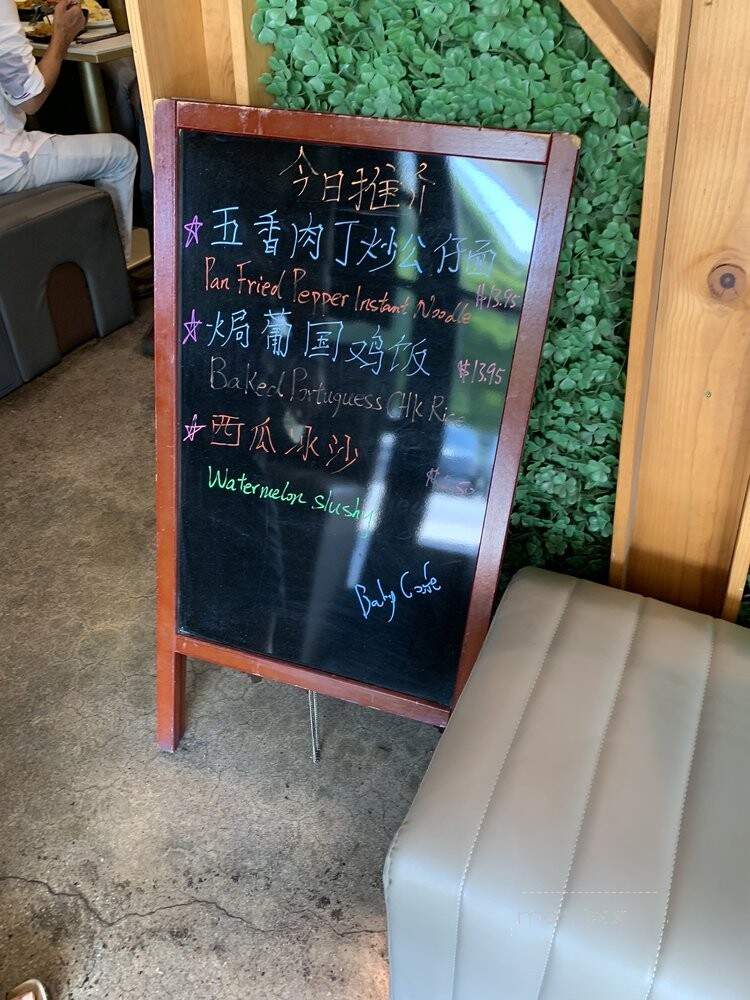 今日推介
☆ 五香肉丁炒公仔面
Pan Fried Pepper Instant Noodle $13.95
☆ 焗葡国鸡饭 $13.95
Baked Portuguess CHK Rice
☆ 西瓜冰沙
Watermelon Slushy
Baby Cafe